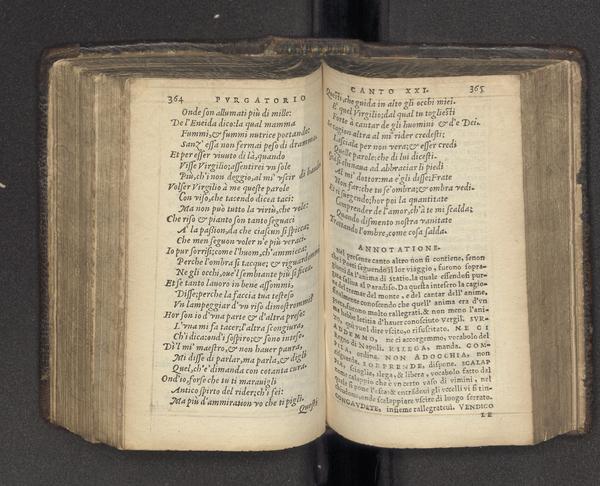 364 PVRGATORIO
Onde son allumati più di mille:
De l'Eneida dico: la qual mamma
Fummi, & fummi nutrice poetando:
Sanz' essa non fermai peso di dramma.
Et per esser vivuto di là, quando
Visse Virgilio; assentirei vn sole
Più, ch'i non deggio, al mi' vscir di bando.
Volser Virgilio à me queste parole
Con viso, che tacendo dicea taci:
Ma non può tutto la virtù, che vole:
Che riso & pianto son tanto seguaci
A la passion, da che ciascun si spicca;
Che men seguon voler ne' più veraci.
Io pur sorrisi; come l'huom, ch'ammicca:
Perche l'ombra si tacque; & riguardommi
Ne gli occhi, oue'l sembiante più si ficca.
Et se tanto lauoro in bene assommi,
Disse; perche la faccia tua testeso
Vn lampeggiar d'vn riso dimostrommi?
Hor son io d'vna parte & d'altra preso:
L'vna mi fa tacer; l'altra scongiura,
Ch'i dica: ond'i sospiro; & sono inteso.
Dì'l mi' maestro, & non hauer paura,
Mi disse di parlar, ma parla, & digli
Quel, ch'e' dimanda con cotanta cura.
Ond'io, forse che tu ti marauigli
Antico spirto del rider; ch'i fei:
Ma più d'ammiration vo che ti pigli.
Questi
CANTO XXI. 365
Questi, che guida in alto gli occhi miei.
E' quel Virgilio; dal qual tu togliesti
Forte à cantar de gli huomini & d'e Dei.
Se cagion altra al mi' rider credesti;
Lasciala per non vera; & esser credi
Quelle parole; che di lui dicesti.
Già si chinaua ad abbracciar li piedi
Al mi' dottor: ma e' gli disse; Frate
Non far: che tu se' ombra; & ombra vedi.
Et ei surgendo; hor poi la quantitate
Comprender de l'amor, ch'à te mi scalda;
Quando dismento nostra vanitate
Trattando l'ombre, come cosa salda.
ANNOTATIONE.
Nel presente canto altro non si contiene, senon
che i Poeti seguendo il lor viaggio, furono sopra-
giunti da l'anima di Statio. la quale essendosi pur-
gata saliua al Paradiso. Da questa inteso la cagio-
ne del tremar del monte, e del cantar dell'anime,
finalmente conoscendo che quell' anima era d'vn
poeta, furono molto rallegrati. & non meno l'ani-
ma hebbe letitia d'hauer conosciuto Vergil. SVR-
qui vuol dire vscito, o risuscitato. NE CI
ADDEMMO, ne ci accorgemmo, vocabolo del
regno di Napoli. RILEGA, manda. COM-
ordina. NON ADOCCHIA, non
SORPRENDE, dispone. SCALAP
PIA, scioglie, slega, & libera, vocabolo fatto dal
nome calappio che è vn certo vaso di vimini, nel
quale si pone l'esca: & entrādoui gli vccelli vi si rin-
chiudono, onde scalappiare vscire di luogo serrato.
CONGAVDETE, insieme rallegrateui. VENDICO
LE